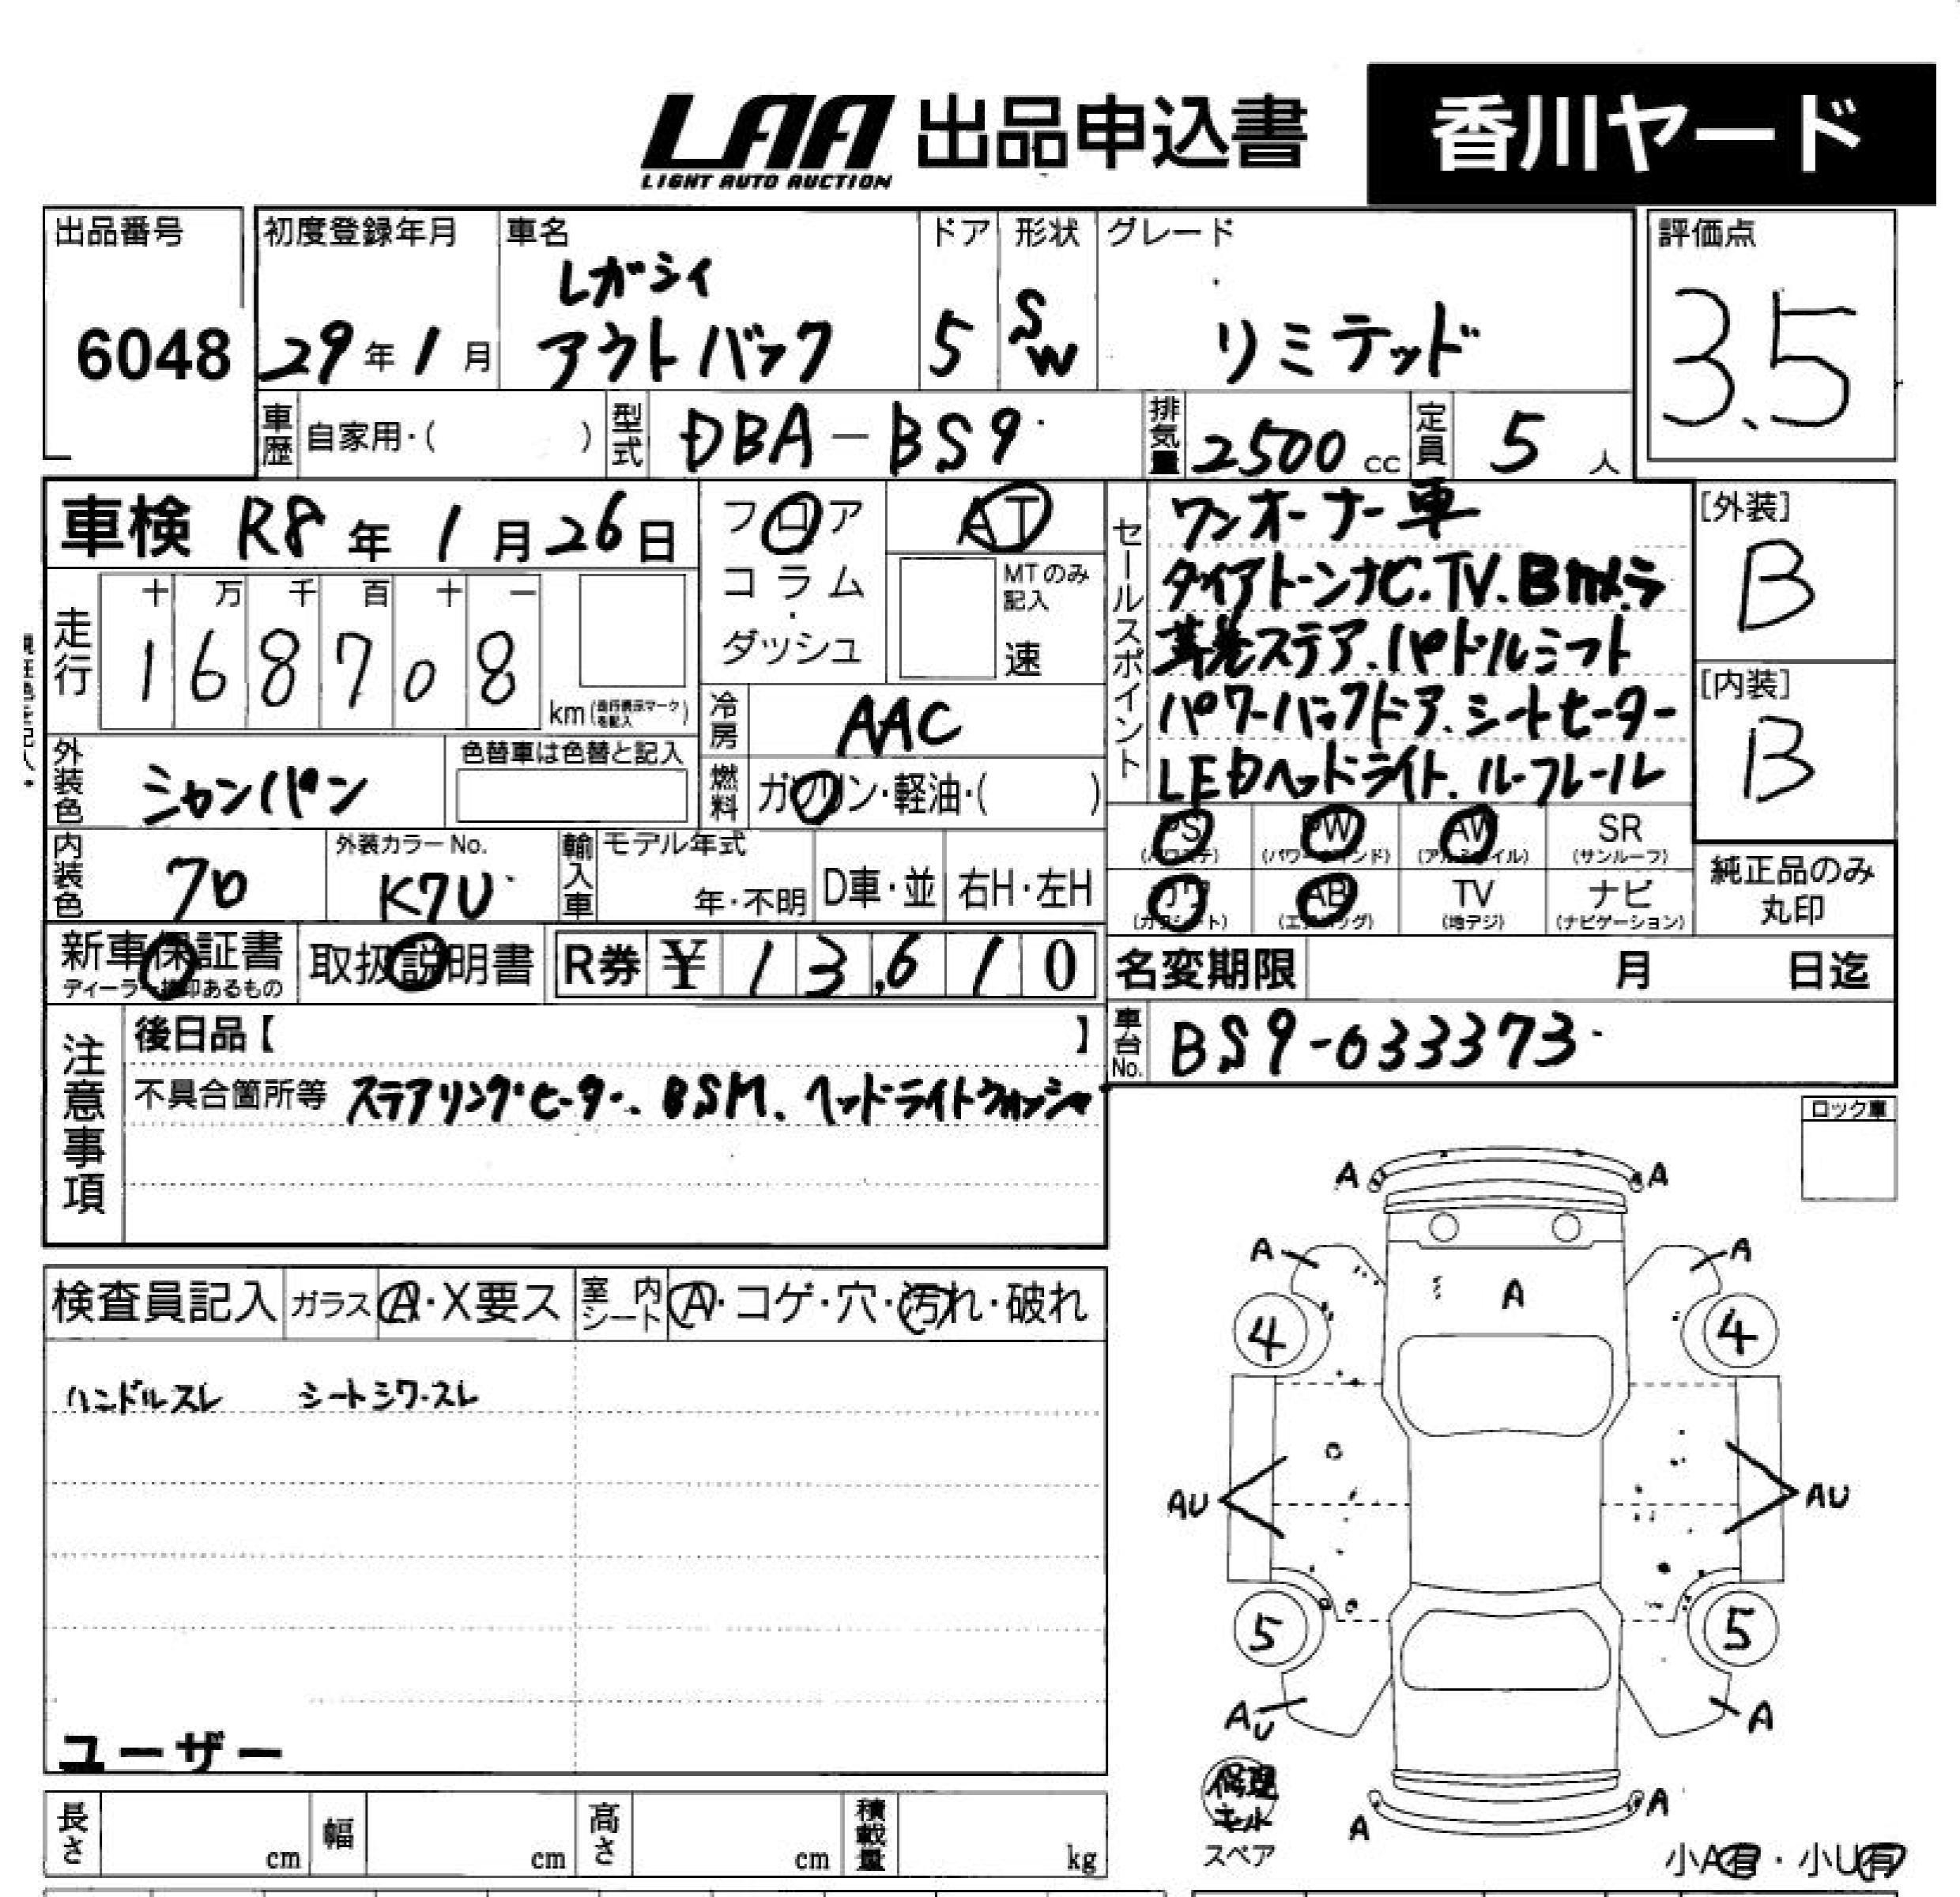 LAA 出品申込書 香川ヤード
LIGHT AUTO AUCTION
出品番号 初度登録年月 車名 ドア 形状 グレード 評価点
6048 29年1月 レガシィ アウトバック 5 SW リミテッド 3.5
車歴 自家用・( ) 型式 DBA-BS9 排気量 2500cc 定員 5人
車検 R8年1月26日 フロア AT セールスポイント ワンオーナー車 [外装]
コラム・ MTのみ記入 ダイアトーンナビ.TV.Bカメラ B
ダッシュ 速 革巻ステア.パドルシフト
走行 十 万 千 百 十 一
1 6 8 7 0 8 km(走行表示マークを記入)
冷房 AAC パワーバックドア.シートヒーター [内装]
外装色 シャンパン 色替車は色替と記入 燃料 ガソリン・軽油・( ) LEDヘッドライト.ルーフレール B
PS AW SR
(パワステ) (パワーウインド) (アルミホイル) (サンルーフ)
内装色 クロ 外装カラーNo. K7U 輸入車 モデル年式 年・不明 D車・並 右H・左H
AB TV ナビ 純正品のみ丸印
(エアバッグ) (地デジ) (ナビゲーション)
新車保証書 取扱説明書 R券 ¥ 13,610 名変期限 月 日迄
ディーラー捺印あるもの
車台No. BS9-033373
注意事項 後日品【 】
不具合箇所等 ステアリングヒーター、BSM、ヘッドライトウォッシャ
ロック車
検査員記入 ガラス A・X要ス 室内シート A・コゲ・穴・汚れ・破れ
ハンドルスレ シートシワ・スレ
ユーザー
A A
A A
A
4 4
AU AU
5 5
AU A
修理キット
スペア
A A
小A有・小U有
長さ cm 幅 cm 高さ cm 積載量 kg